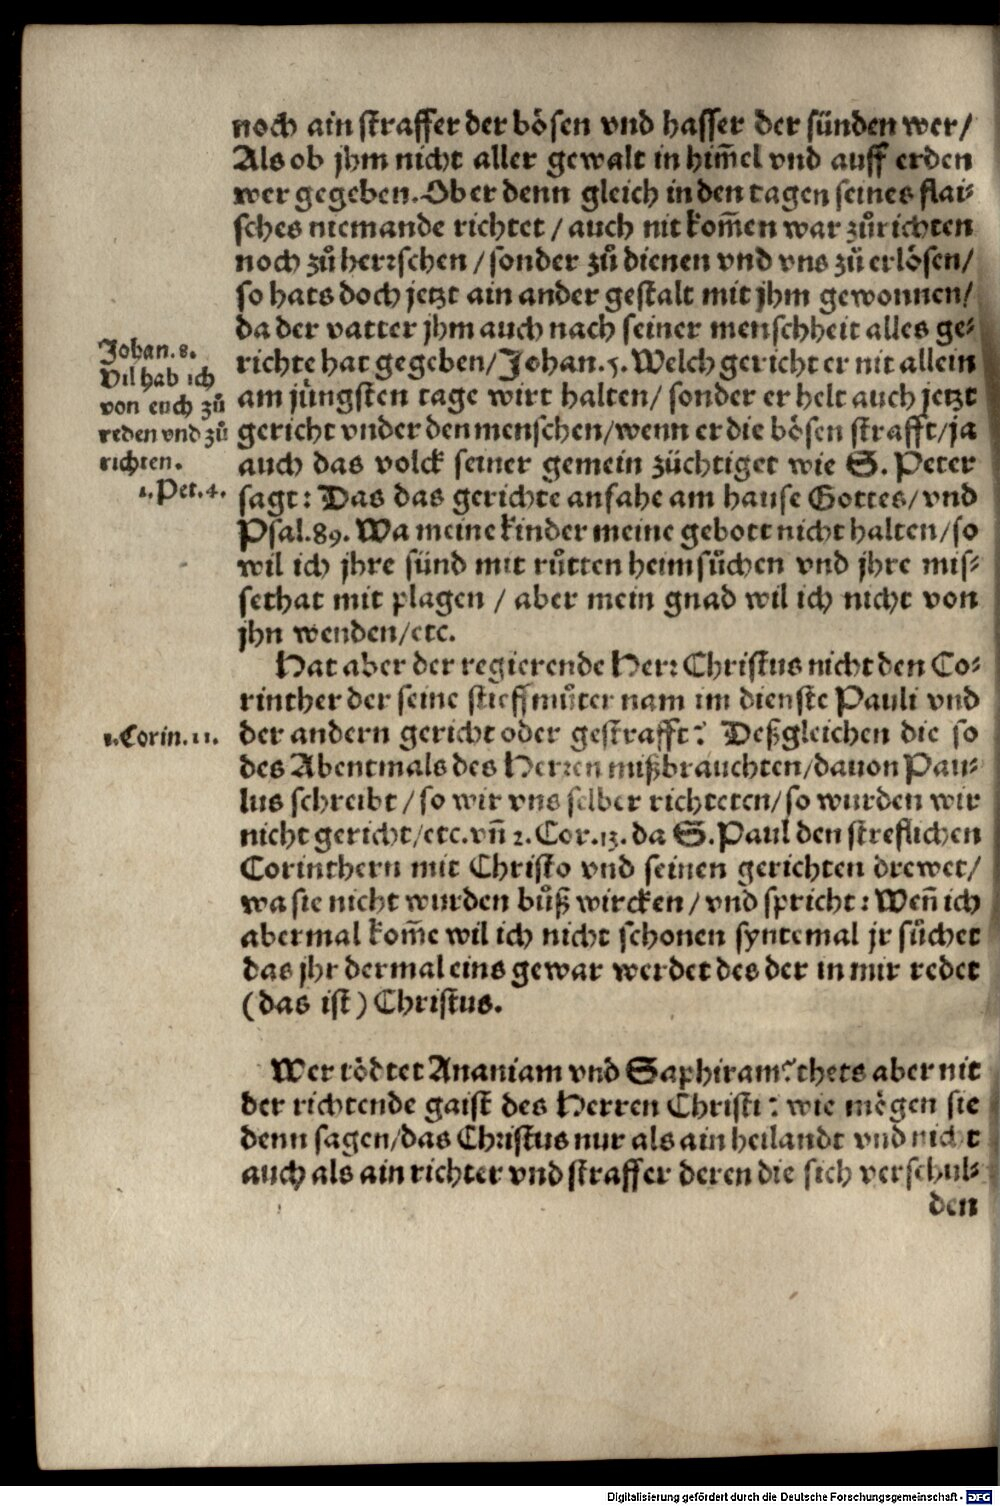 noch ain straffer der bösen vnd hasser der sünden wer/
Als ob jhm nicht aller gewalt in him̃el vnd auff erden
wer gegeben. Ob er denn gleich in den tagen seines flai-
sches niemande richtet / auch nit kom̃en war zů richten
noch zů herrschen / sonder zů dienen vnd vns zů erlösen/
so hats doch jetzt ain ander gestalt mit jhm gewonnen/
da der vatter jhm auch nach seiner menschheit alles ge-
richte hat gegeben/ Johan. 5. Welch gericht er nit allein
am jüngsten tage wirt halten/ sonder er helt auch jetzt
gericht vnder den menschen/wenn er die bösen strafft/ja
auch das volck seiner gemein züchtiget wie S. Peter
sagt: Das das gerichte anfahe am hause Gottes/ vnd
Psal. 89. Wa meine kinder meine gebott nicht halten/so
wil ich jhre sünd mit růtten heimsůchen vnd jhre mis-
sethat mit plagen / aber mein gnad wil ich nicht von
jhn wenden/etc.
Johan. 8.
Vil hab ich
von euch zů
reden vnd zů
richten.
1. Pet. 4.
Hat aber der regierende Herr Christus nicht den Co-
rinther der seine stieffmůter nam im dienste Pauli vnd
der andern gericht oder gestrafft? Deßgleichen die so
des Abentmals des Herren mißbrauchten/dauon Pau-
lus schreibt / so wir vns selber richteten/ so wurden wir
nicht gericht/etc. vñ 2. Cor. 13. da S. Paul den streflichen
Corinthern mit Christo vnd seinen gerichten drewet/
wa sie nicht wurden bůß wircken / vnd spricht: Weñ ich
abermal kom̃e wil ich nicht schonen syntemal jr sůchet
das jhr dermal eins gewar werdet des der in mir redet
(das ist) Christus.
1. Corin. 11.
Wer tödtet Ananiam vnd Saphiram? thets aber nit
der richtende gaist des Herren Christi? wie mögen sie
denn sagen/das Christus nur als ain heilandt vnd nicht
auch als ain richter vnd straffer deren die sich verschul-
den
Digitalisierung gefördert durch die Deutsche Forschungsgemeinschaft - DFG